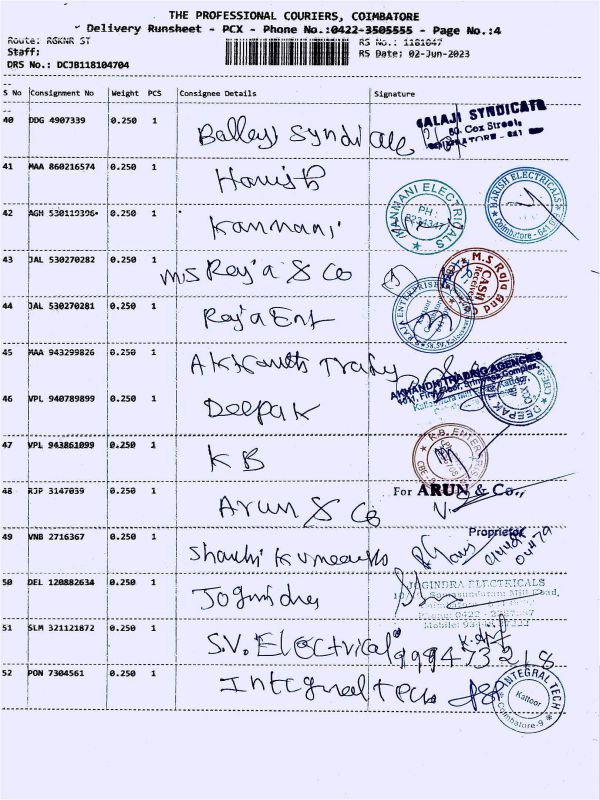 THE PROFESSIONAL COURIERS, COIMBATORE
Delivery Runsheet - PCX - Phone No.:0422-3505555 - Page No.:4
Route: RGKNR ST
RS No.: 1181047
Staff:
RS Date: 02-Jun-2023
DRS No.: DCJB118104704
S No Consignment No Weight PCS Consignee Details Signature
40 DDG 4907339 0.250 1
BALAJI SYNDICATE
60, Cox Street
41 MAA 860216574 0.250 1 Harish
HARISH ELECTRICALS
Coimbatore - 641
42 AGH 530119396 0.250 1 Kanmani
KANMANI ELECTRICALS
PH:
43 JAL 530270282 0.250 1 MS Raja & Co
M.S Raja and Co
CASH
44 JAL 530270281 0.250 1 Raja Ent
RAJA ENTERPRISES
45 MAA 943299826 0.250 1
AKHANDH TRADING AGENCIES
First Floor, Srinivasa Complex,
46 VPL 940789899 0.250 1 Deepak
DEEPAK
47 VPL 943861099 0.250 1 KB
K.B. ENTER
48 RJP 3147039 0.250 1 Arun & Co
For ARUN & Co.,
Proprietor
49 VNB 2716367 0.250 1
50 DEL 120882634 0.250 1
JOGINDRA ELECTRICALS
Mill Road,
Mobile:
51 SLM 321121872 0.250 1 S.V. Electrical
52 PON 7304561 0.250 1 Integral Tech
INTEGRAL TECH
Kattoor
Coimbatore-9